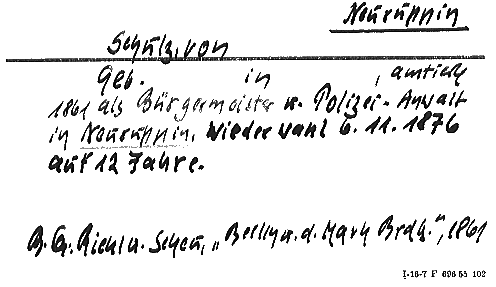 Neuruppin
Schulz, von
geb. in , amtierte
1861 als Bürgermeister u. Polizei-Anwalt
in Neuruppin, Wiederwahl 6.11.1876
auf 12 Jahre.
B.G. Riehl u. Scheu, "Berlin u. d. Mark Brdbg.", 1861
I-16-7 F 696 55 102